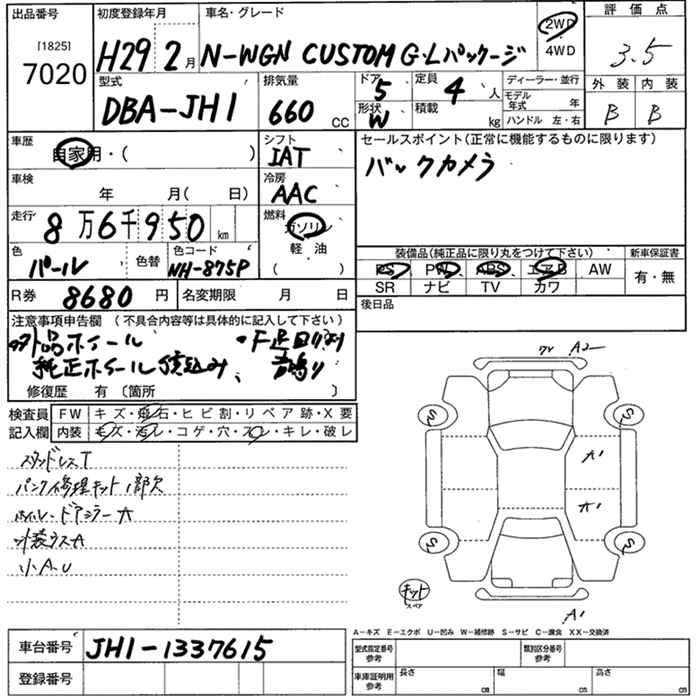 出品番号 初度登録年月 車名・グレード 評価点
[1825] 7020 H29 2月 N-WGN CUSTOM G・Lパッケージ 2WD 4WD 3.5
型式 排気量 ドア 定員 ディーラー・並行 外装 内装
DBA-JH1 660 CC 5 4人 モデル年式 年 B B
形状 W 積載 kg ハンドル 左・右
車歴 シフト セールスポイント(正常に機能するものに限ります)
自家用・( ) IAT バックカメラ
車検 冷房
年 月( 日) AAC
走行 燃料
8万6千950km ガソリン
色 色替 色コード 軽油 装備品(純正品に限り丸をつけて下さい) 新車保証書
パール NH-875P ( ) PS PW ABS エアB AW 有・無
R券 8680円 名変期限 月 日 SR ナビ TV カワ
注意事項申告欄 (不具合内容等は具体的に記入して下さい) 後日品
外品ホイール ・F足回り
純正ホイール積込み、 音鳴り
修復歴 有 〔箇所 〕
検査員 FW キズ・飛石・ヒビ割・リペア跡・X要
記入欄 内装 キズ・汚レ・コゲ・穴・スレ・キレ・破レ
スタッドレスT
パンク修理キット1部欠
ホイル・ドアミラーA
外装ウスA
小A.U
A2
S S
A1
A1
S S
キット
スペア
A1
A-キズ E-エクボ U-凹み W-補修跡 S-サビ C-腐食 XX-交換済
車台番号 JH1-1337615 型式指定番号 参考 類別区分番号 参考
登録番号 車庫証明用 参考 長さ cm 幅 cm 高さ cm